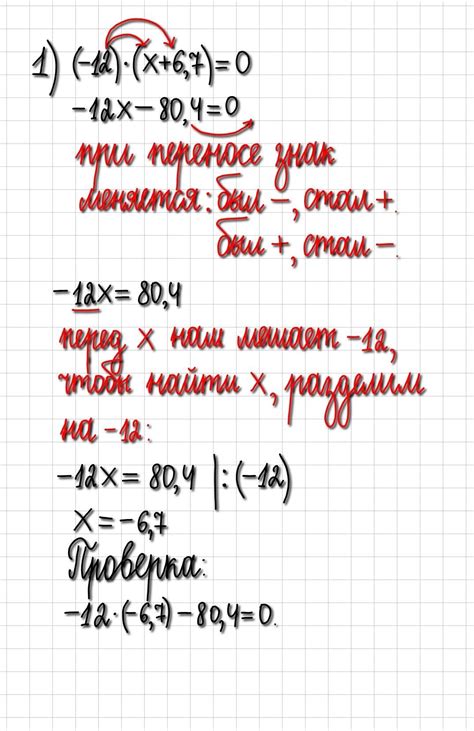 1) (-12)·(x+6,7)=0
-12x-80,4=0
при переносе знак
меняется: был -, стал +.
был +, стал -.
-12x=80,4
перед x нам мешает -12,
чтобы найти x, разделим
на -12:
-12x=80,4 |:(-12)
x=-6,7
Проверка:
-12·(-6,7)-80,4=0.